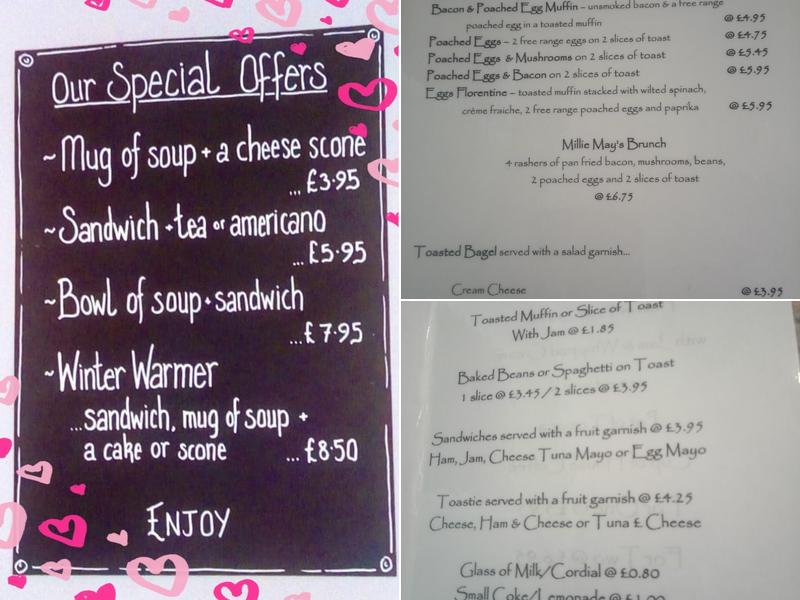 Our Special Offers
~Mug of soup + a cheese scone
... £3.95
~Sandwich + tea or americano
... £5.95
~Bowl of soup + sandwich
... £7.95
~Winter Warmer
...sandwich, mug of soup +
a cake or scone ... £8.50
ENJOY
Bacon & Poached Egg Muffin – unsmoked bacon & a free range
poached egg in a toasted muffin @ £4.95
Poached Eggs – 2 free range eggs on 2 slices of toast @ £4.75
Poached Eggs & Mushrooms on 2 slices of toast @ £5.45
Poached Eggs & Bacon on 2 slices of toast @ £5.95
Eggs Florentine – toasted muffin stacked with wilted spinach,
crème fraiche, 2 free range poached eggs and paprika @ £5.95
Millie May's Brunch
4 rashers of pan fried bacon, mushrooms, beans,
2 poached eggs and 2 slices of toast
@ £6.75
Toasted Bagel served with a salad garnish...
Cream Cheese @ £3.95
Toasted Muffin or Slice of Toast
With Jam @ £1.85
Baked Beans or Spaghetti on Toast
1 slice @ £3.45 / 2 slices @ £3.95
Sandwiches served with a fruit garnish @ £3.95
Ham, Jam, Cheese Tuna Mayo or Egg Mayo
Toastie served with a fruit garnish @ £4.25
Cheese, Ham & Cheese or Tuna & Cheese
Glass of Milk/Cordial @ £0.80
Small Coke/Lemonade @ £1.00